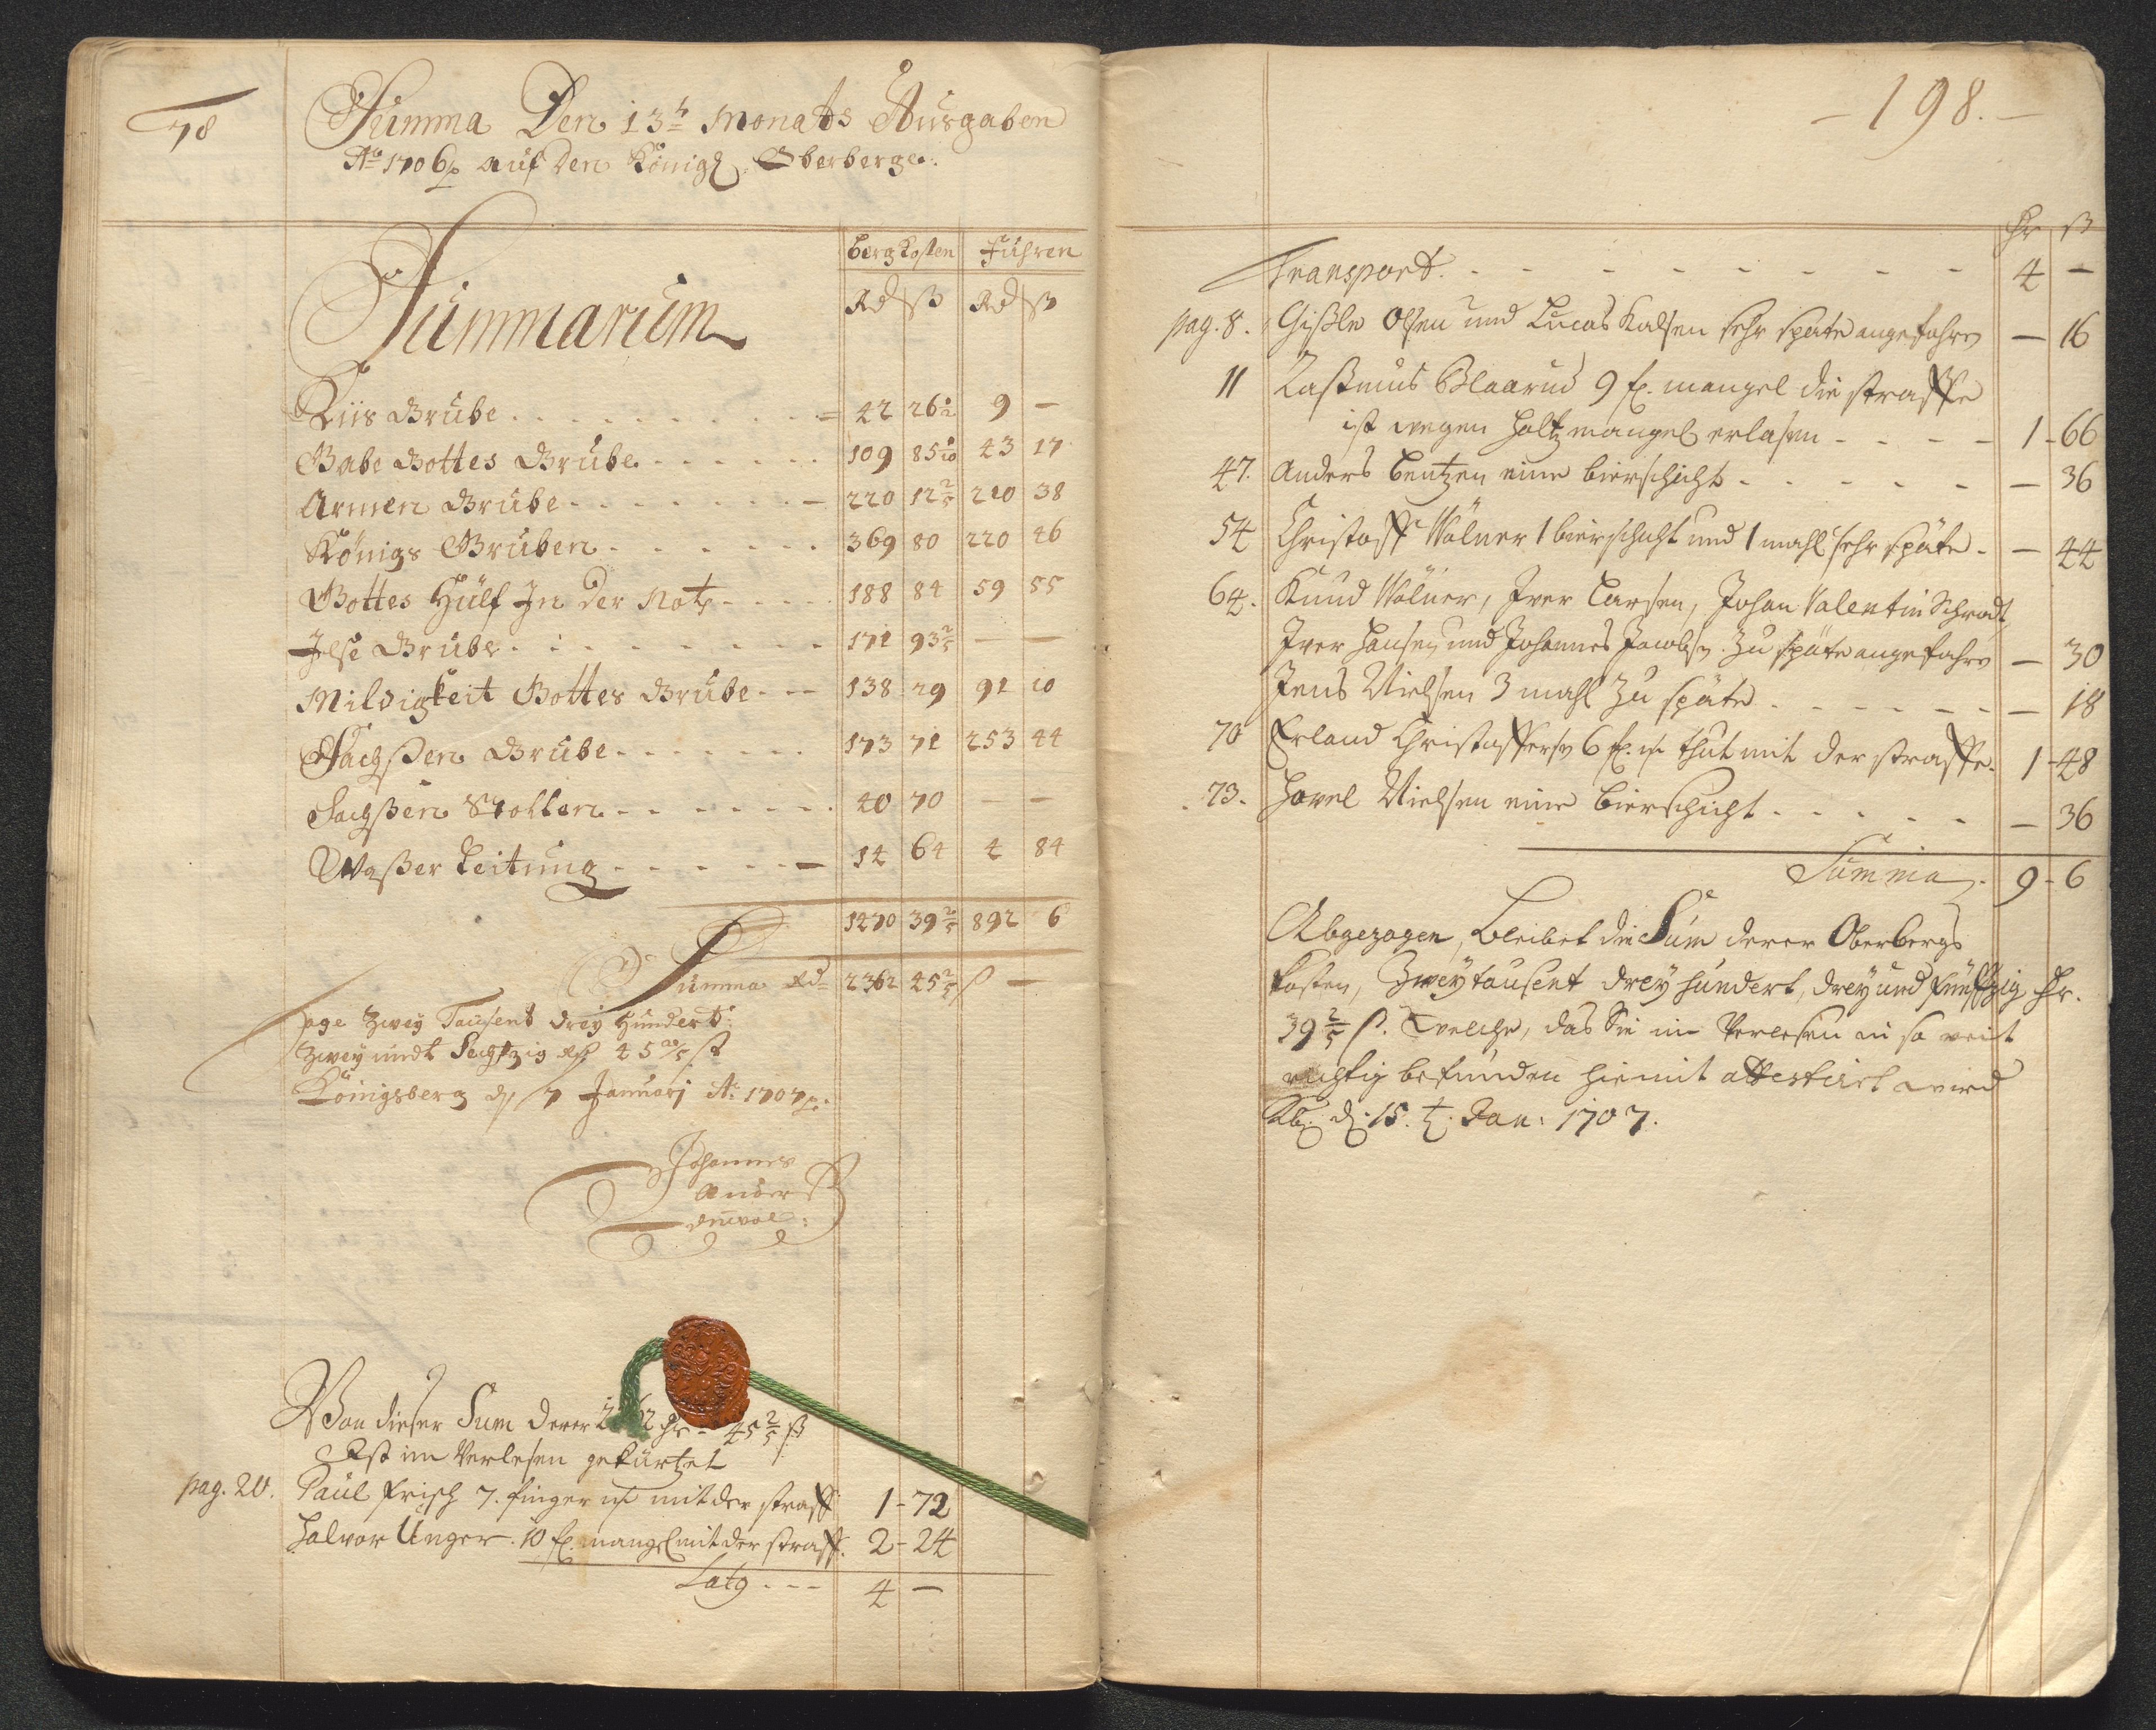 78
Summa Den 13t Monats Ausgaben
Ao 1706 auf Den Königl. Oberberge.
Bergkosten Fuhren
Summarum
Rd ß Rd ß
Riis Grube 42 26 9 –
Gabe Gottes Grube 109 85 43 17
Armen Grube 220 12 2/5 210 38
Königs Gruben 369 80 220 46
Gottes Hülf In Der Noth 188 84 59 55
Jlse Grube 171 93 2/5 – –
Mildigkeit Gottes Grube 138 29 91 10
Sachßen Grube 173 71 253 44
Sachßen Stollen 40 70 – –
Waßer Leitung 14 64 4 84
1470 39 2/5 892 6
Summa Rd 2362 45 2/5 ß –
sage Zwey Tausend Drey Hundert
Zwey undt Sechtzig Rd 45 2/5 ß
Königsberg d 7 Januarj Ao 1707.
Johannes
Anders
Von dieser Sum derer 2362 Hr 45 2/5 ß
Ist im Verlesen gekürtzet
pag. 20. Paul Frisch 7. finger mit der straff 1 – 72
Halvor Unger. 10 f. mangel mit der straff. 2 – 24
Latg 4 –
– 198. –
Hr ß
Transport. 4 –
pag. 8. Gißle Olsen und Lucas Kalsen sehr späte angefahren – 16
11 Raßmus Blaarud 9 f. mangel die straffe
ist wegen Holtz mangel erlaßen 1 – 66
47. Anders Bentzen eine bierschicht – 36
54 Christoff Wölner 1 bierschicht und 1 mahl sehr späte – 44
64. Knud Wölner, Iver Larsen, Johan Valentin Schradt
Iver Hansen und Johannes Jacobsen. Zu späte angefahren – 30
Jens Nielsen 3 mahl zu späte – 18
70 Erland Christoffersen 6 f. thut mit der straffe. 1 – 48
73. Havel Nielsen eine bierschicht – 36
Summa 9 – 6
Abgezogen, bleibet die Sum derer Oberbergs
kosten, Zwey tausent drey hundert, drey und fünffzig Hr.
39 2/5 ß. welche, das Sie im Verlesen in so weit
richtig befunden hiemit attestiret wird
Kb. d. 15. t. Jan: 1707.